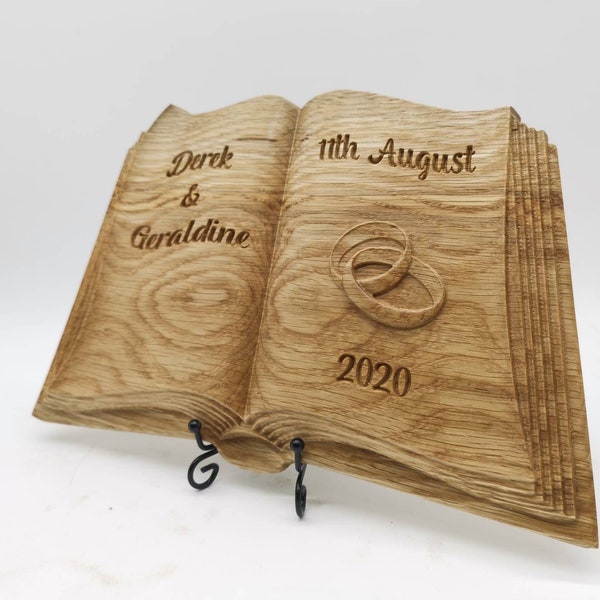 Derek
&
Geraldine
11th August
2020